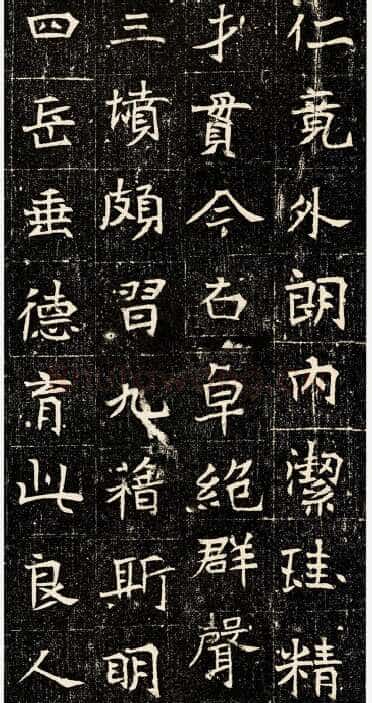 仁竟外朗内潔珪精
才貫今古卓絶群聲
三墳頗習九籍斯明
四岳垂德育此良人